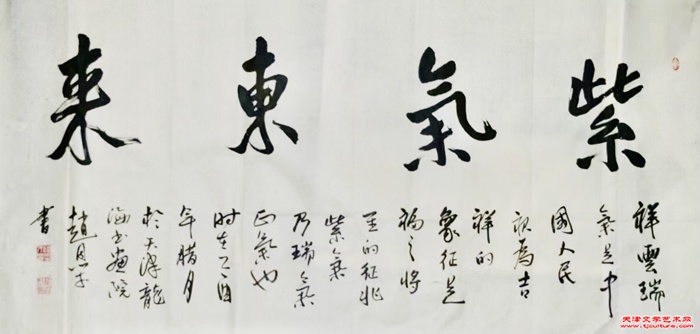 紫氣東来
祥雲瑞
氣是中
國人民
視為吉
祥的
象征是
福之將
至的征兆
紫氣
乃瑞氣
正氣也
时在
年腊月
於天津龍
海书画院
趙恩
書
天津文学艺术网
www.tjculture.com